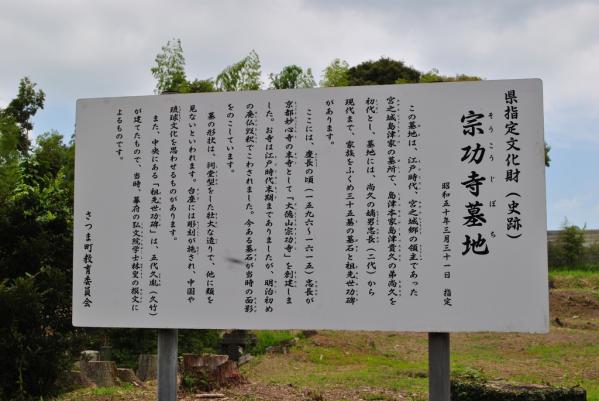 県指定文化財(史跡)
そうこうじぼち
宗功寺墓地
昭和五十年三月三十一日 指定
この墓地は、江戸時代、宮之城郷の領主であった
宮之城島津家の墓所で、島津本家島津貴久の弟尚久を
初代とし、墓地には、尚久の嫡男忠長(二代)から
現代まで、家族をふくめ三十五基の墓石と祖先世功碑
があります。
ここには、慶長の頃(一五九六〜一六一五)忠長が
京都妙心寺の末寺として「大徳山宗功寺」を創建しま
した。お寺は江戸時代末期までありましたが、明治初め
の廃仏毀釈でこわされました。今ある墓石が当時の面影
をのこしています。
墓の形状は、祠堂型をした壮大な造りで、他に類を
見ないといわれます。台座には彫刻が施され、中国や
琉球文化を思わせるものがあります。
また、中央にある「祖先世功碑」は、五代久胤(久竹)
が建てたもので、当時、幕府の弘文院学士林叟の撰文に
よるものです。
さつま町教育委員会